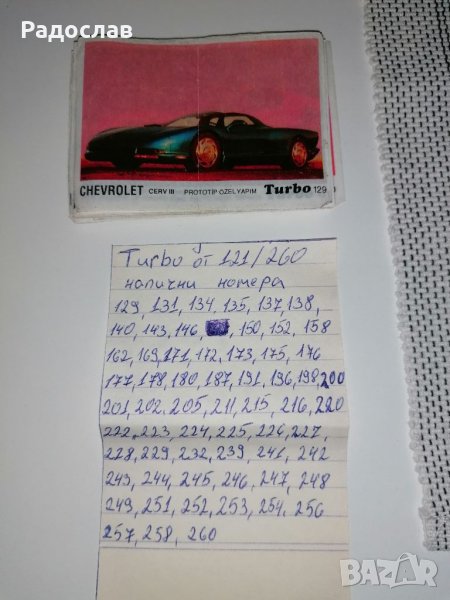 Радослав
CHEVROLET CERV III PROTOTİP ÖZELYAPIM Turbo 129
Turbo от 121/260
налични номера
129, 131, 134, 135, 137, 138,
140, 143, 146, , 150, 152, 158
162, 169, 171, 172, 173, 175, 176
177, 178, 180, 187, 191, 196, 198, 200
201, 202, 205, 211, 215, 216, 220
222, 223, 224, 225, 226, 227,
228, 229, 232, 239, 241, 242
243, 244, 245, 246, 247, 248
249, 251, 252, 253, 254, 256
257, 258, 260
BAZAR